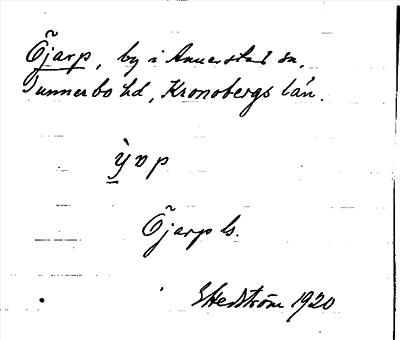 Õjarp, by i Annerstad sn,
Sunnerbo hd, Kronobergs län.
ỳvp
Õjarp ls.
G Hedström 1920